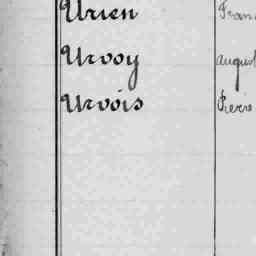 Urien Fran
Urvoy august
Urvois Pierre